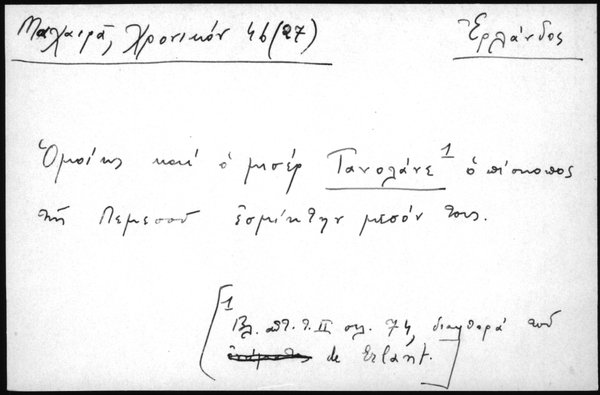 Μαχαιρᾶ, Χρονικόν 46 (27) Ἐρλάνδος
Ὁμοίως καί ὁ μισέρ Τανολάνε¹ ὁ πίσκοπος
τῆς Λεμεσοῦ ἐσμίκτην μεσόν τους.
[¹ Βλ. αὐτ. τ. II σελ. 74, διαφορά τοῦ
de Erlant.]